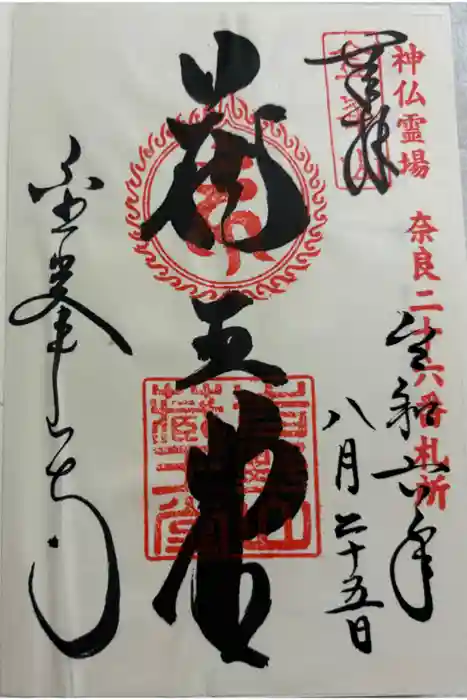 神仏霊場 奈良二十六番札所
奉拝
令和六年
八月二十五日
蔵王堂
金峯山寺